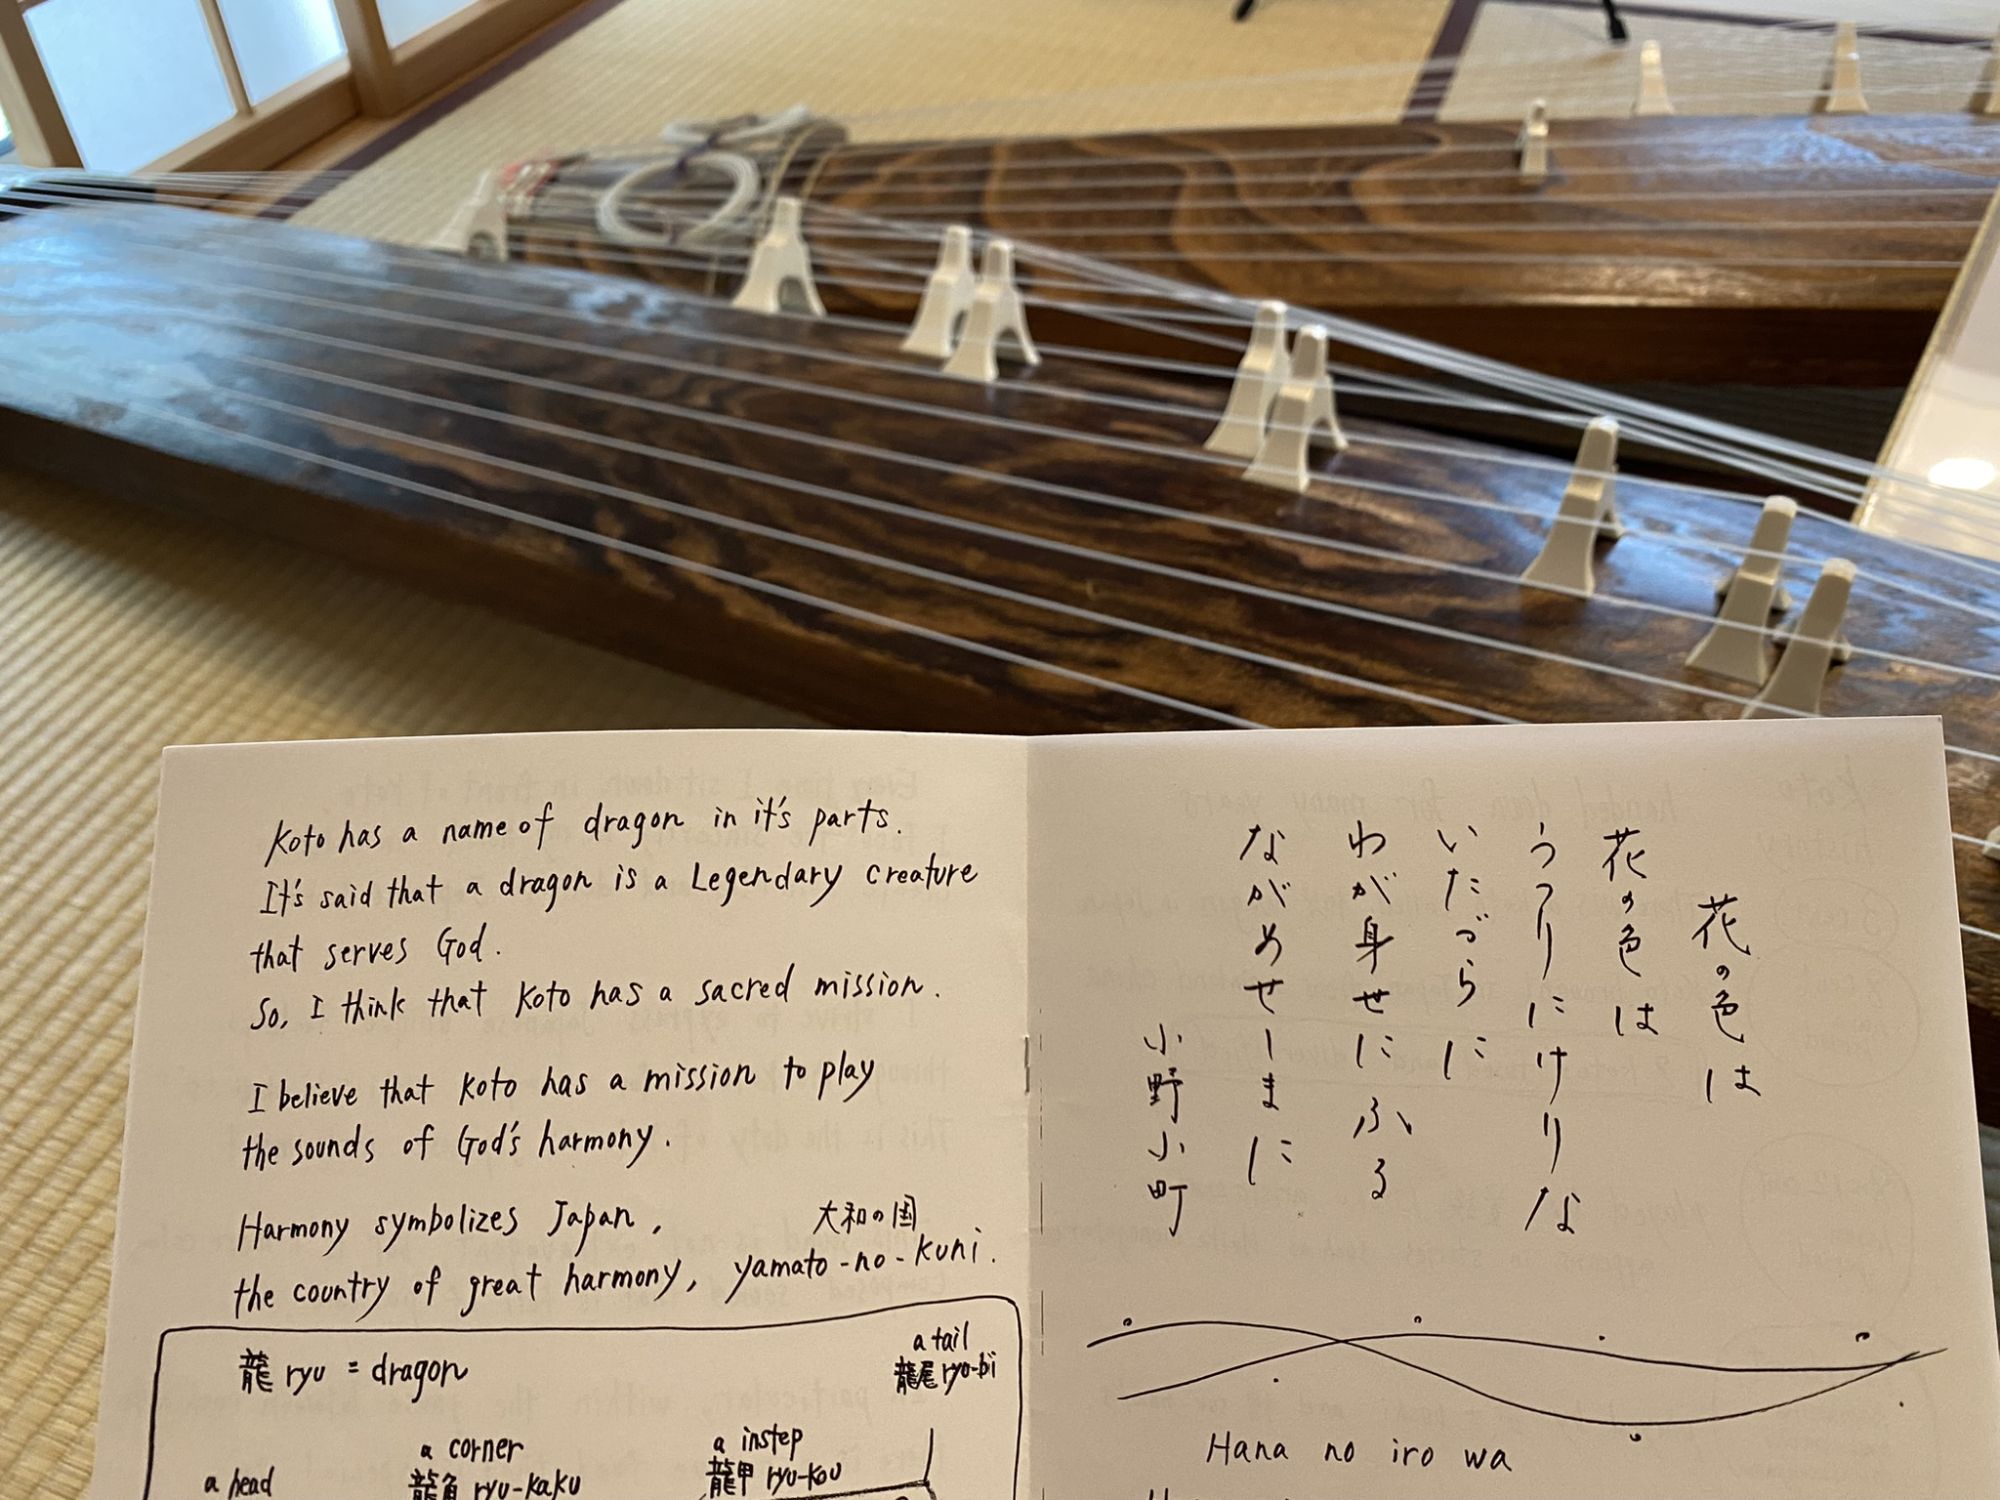 Koto has a name of dragon in it's parts.
It's said that a dragon is a Legendary creature
that serves God.
So, I think that Koto has a sacred mission.
I believe that Koto has a mission to play
the sounds of God's harmony.
Harmony symbolizes Japan,
大和の国
the country of great harmony, yamato-no-kuni.
龍 ryu = dragon
a tail
龍尾 ryu-bi
a corner
龍角 ryu-kaku
a instep
龍甲 ryu-kou
a head
花の色は
花の色は
うつりにけりな
いたづらに
わが身世にふる
ながめせしまに
小野小町
Hana no iro wa